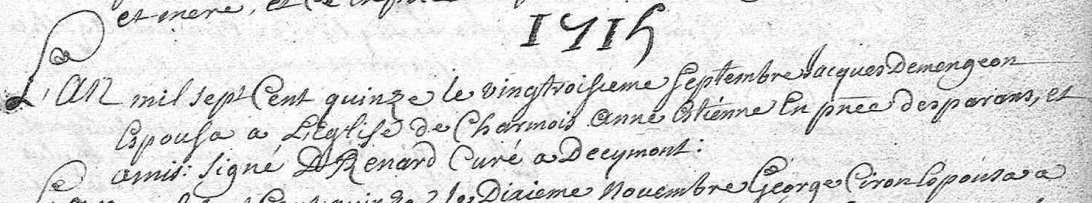 et mere, et
1715
L'an mil sept Cent quinze le vingtroisieme septembre Jacques Demengeon
Espousa a L'Eglise de Charmois Anne Estienne En pñce des parans, et
amis: signé D Renard Curé a Decymont:
quinze le Dixieme Novembre George Ciron Espousa a